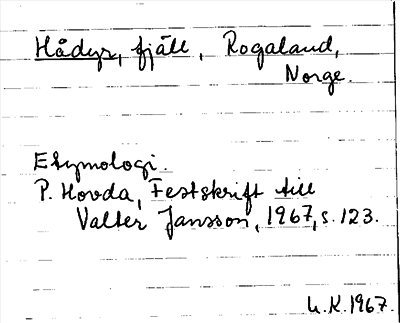 Hådyr, fjäll, Rogaland,
Norge.
Etymologi
P. Hovda, Festskrift till
Valter Jansson, 1967, s. 123.
L.K. 1967.